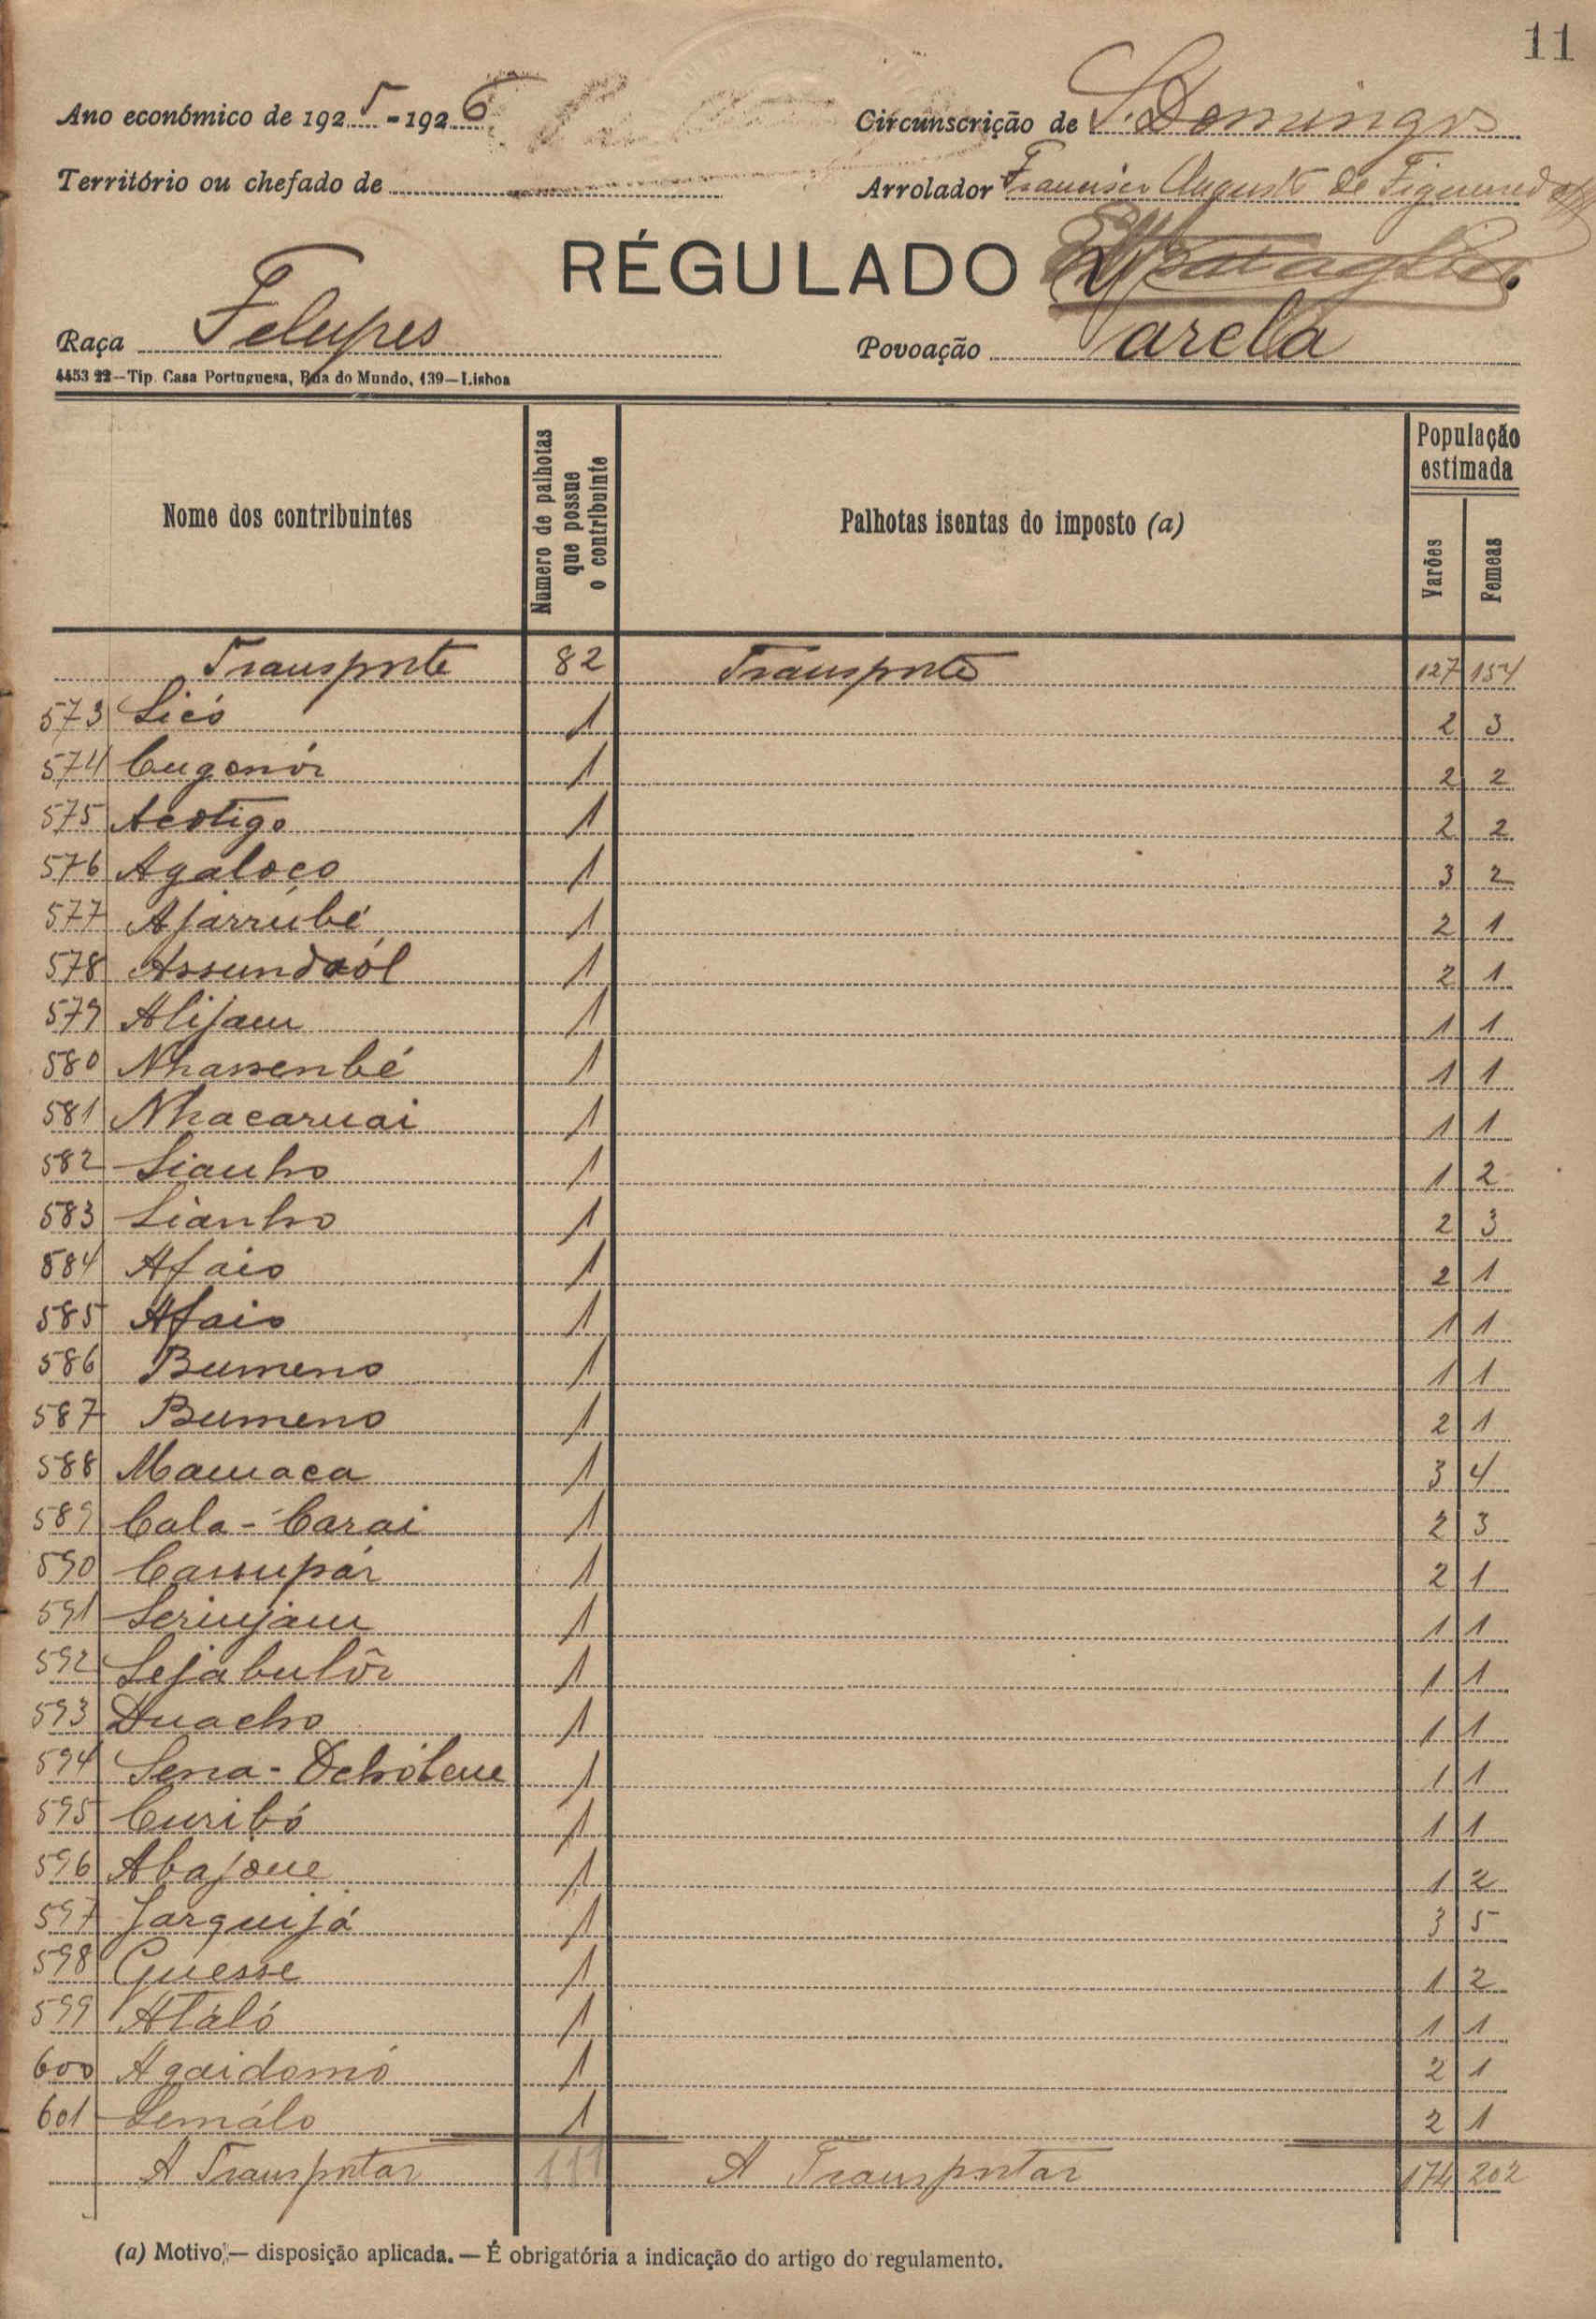 11
Ano económico de 1925-1926 Circunscrição de S. Domingos
Território ou chefado de Arrolador Francisco Augusto de Figueiredo
RÉGULADO
Raça Felupes Povoação Varela
4453 22—Tip. Casa Portuguesa, Rua do Mundo, 139—Lisboa
Nome dos contribuintes Numero de palhotas que possue o contribuinte Palhotas isentas do imposto (a) População estimada Varões Femeas
Transporte 82 Transporte 127 154
573 Licó 1 2 3
574 Cugonór 1 2 2
575 Acotigo 1 2 2
576 Agaloço 1 3 2
577 Ajarrubé 1 2 1
578 Assundaól 1 2 1
579 Alijam 1 1 1
580 Nhassenbé 1 1 1
581 Nhacaruai 1 1 1
582 Lianho 1 1 2
583 Lianho 1 2 3
584 Afaio 1 2 1
585 Afaio 1 1 1
586 Bumeno 1 1 1
587 Bumeno 1 2 1
588 Mamaca 1 3 4
589 Cala-Carai 1 2 3
590 Cassupár 1 2 1
591 Lerinjam 1 1 1
592 Lejabulôr 1 1 1
593 Duacho 1 1 1
594 1 1 1
595 Curibó 1 1 1
596 Abajoue 1 1 2
597 Jarquijá 1 3 5
598 Guesse 1 1 2
599 Ataló 1 1 1
600 Agaidomó 1 2 1
601 Lemálo 1 2 1
A Transportar 111 A Transportar 174 202
(a) Motivo — disposição aplicada. — É obrigatória a indicação do artigo do regulamento.